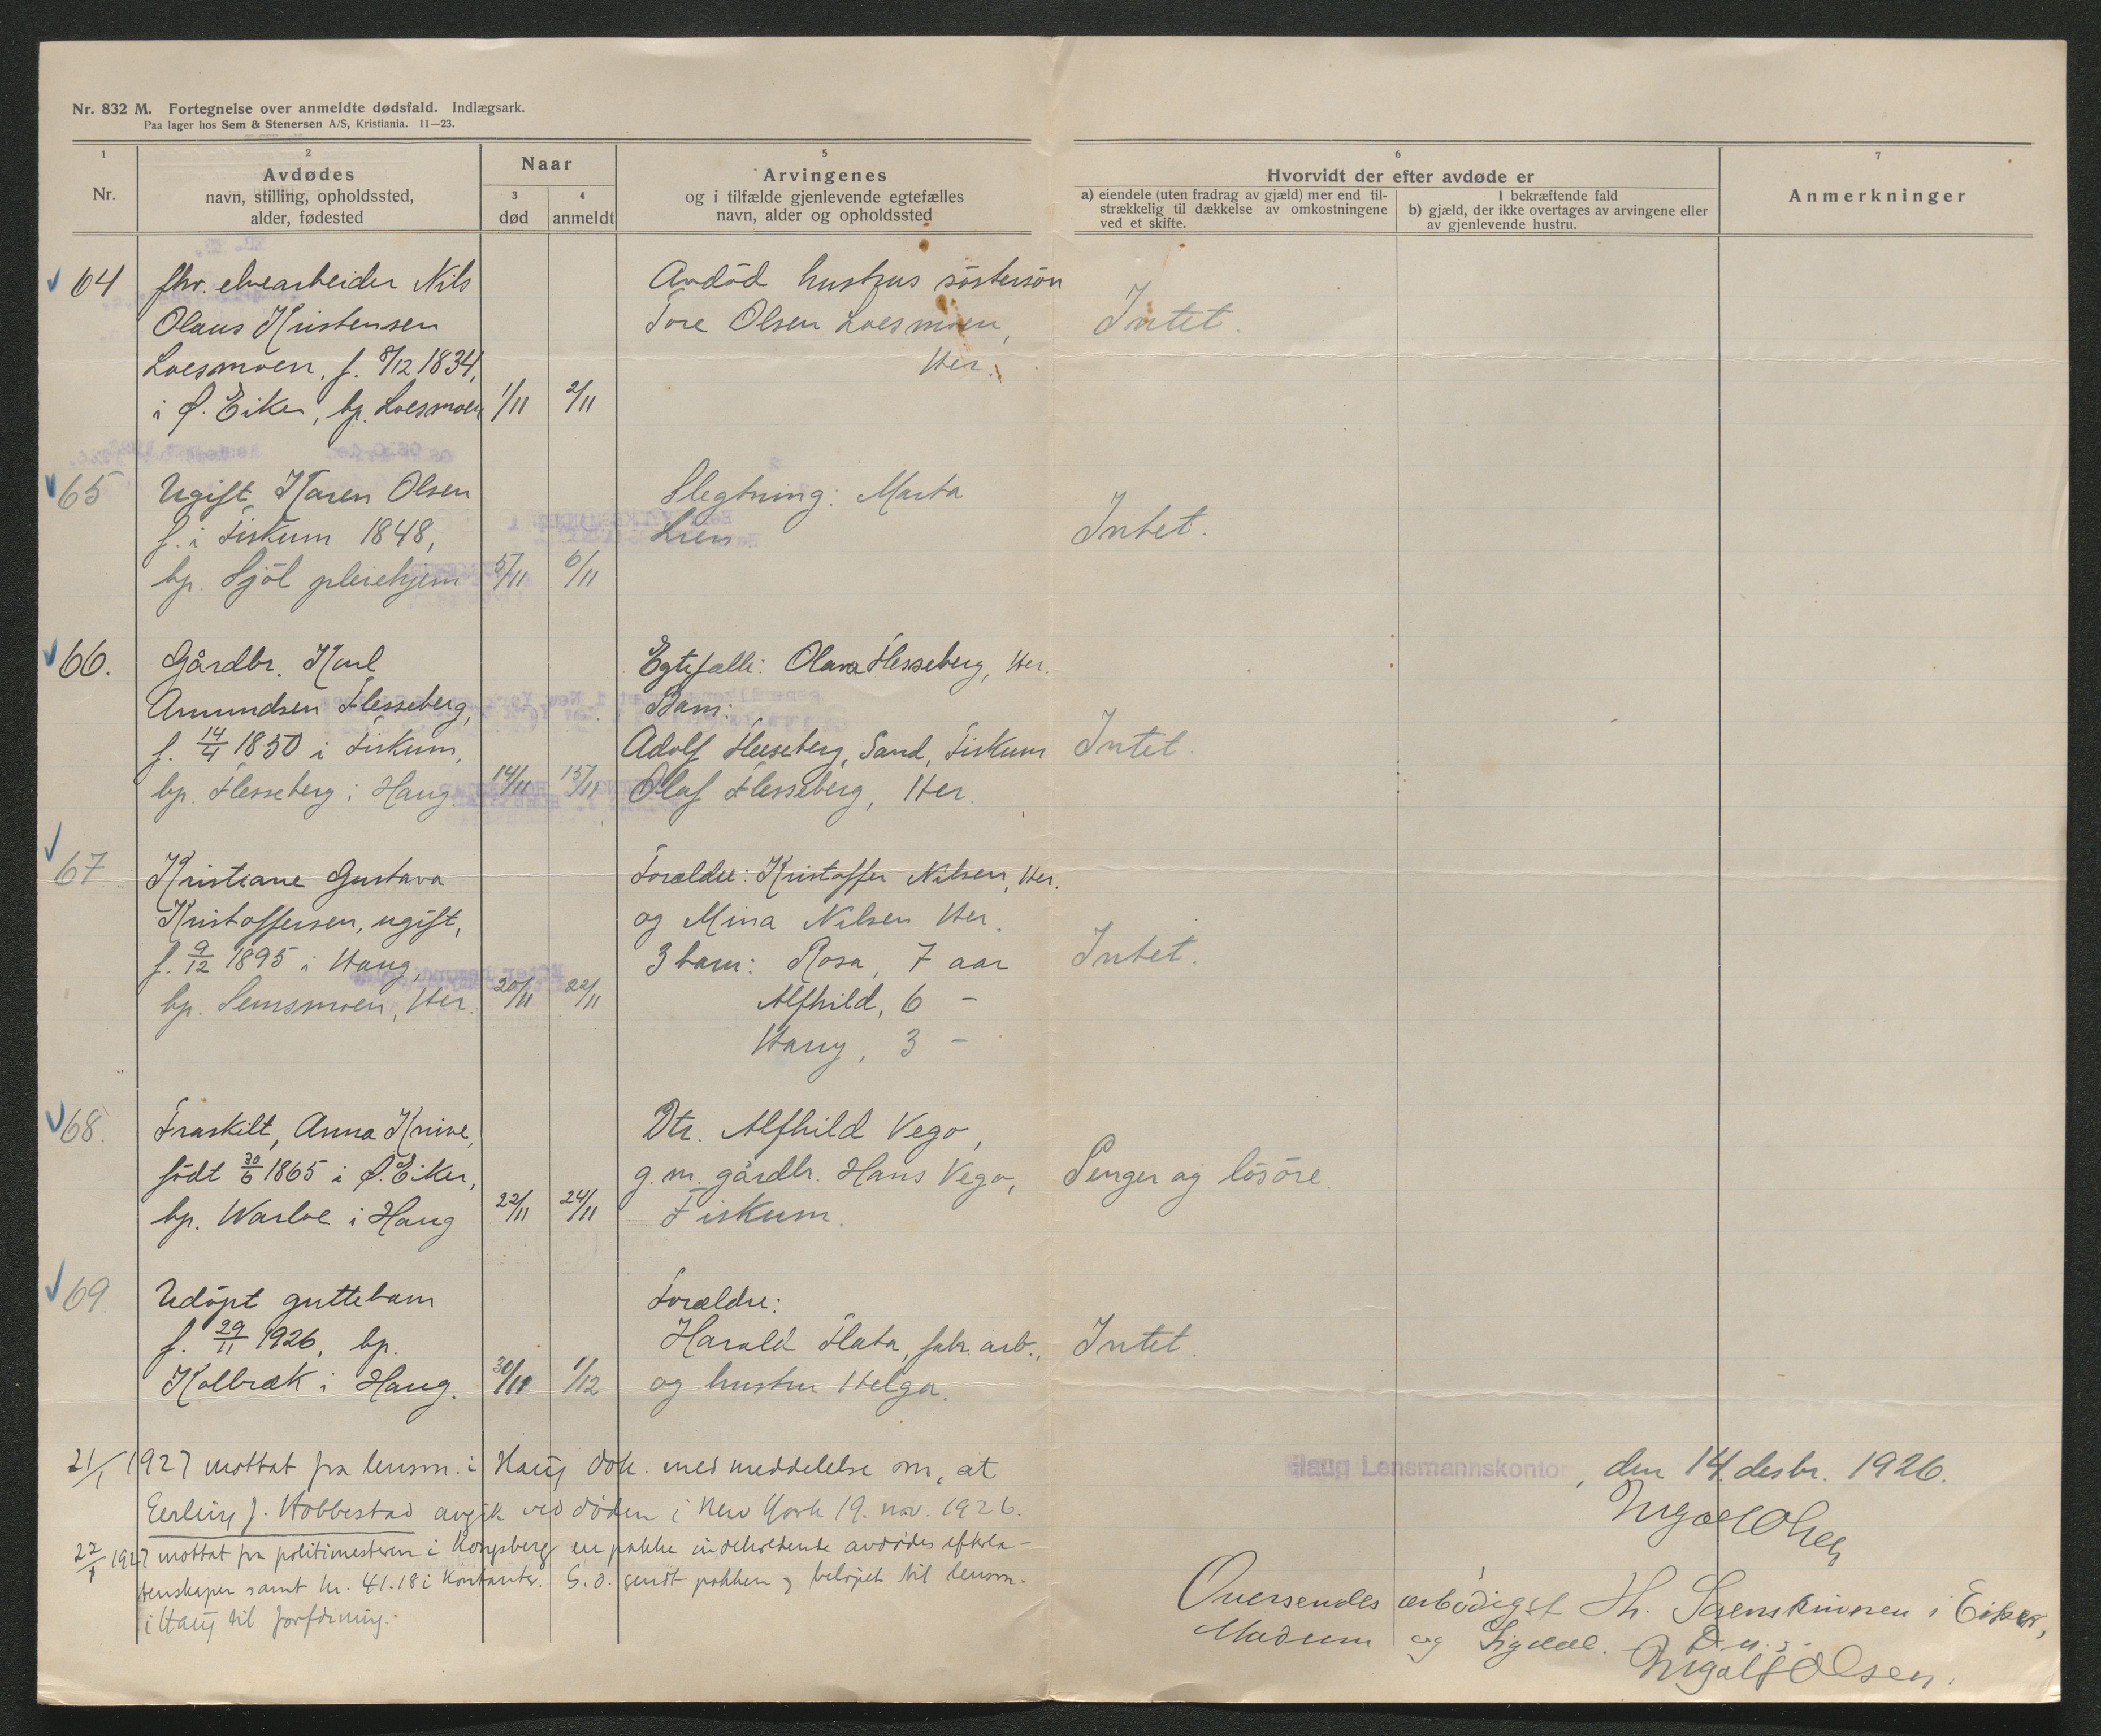 Nr. 832 M. Fortegnelse over anmeldte dødsfald. Indlægsark.
Paa lager hos Sem & Stenersen A/S, Kristiania. 11—23.
1
Nr.
2
Avdødes
navn, stilling, opholdssted,
alder, fødested
Naar
3
død
4
anmeldt
5
Arvingenes
og i tilfælde gjenlevende egtefælles
navn, alder og opholdssted
6
Hvorvidt der efter avdøde er
a) eiendele (uten fradrag av gjæld) mer end til-
strækkelig til dækkelse av omkostningene
ved et skifte.
I bekræftende fald
b) gjæld, der ikke overtages av arvingene eller
av gjenlevende hustru.
7
Anmerkninger
64
fhv. elvearbeider Nils
Olaus Kristensen
Loesmoen, f. 8/12 1834,
i Ø. Eiker, bp. Loesmoen
1/11
2/11
Avdød hustrus søstersøn
Tore Olsen Loesmoen,
Her.
Intet.
65
Ugift, Karen Olsen
f. i Fiskum 1848,
bp. Sjøl pleiehjem
5/11
6/11
Slegtning: Marta
Lien
Intet.
66.
Gårdbr. Karl
Amundsen Flesseberg,
f. 14/4 1850 i Fiskum,
bp. Flesseberg i Haug.
14/11
15/11
Egtefælle: Olava Flesseberg, Her.
Barn:
Adolf Flesseberg, Sand, Fiskum
Olaf Flesseberg, Her.
Intet.
67
Kristiane Gustava
Kristoffersen, ugift,
f. 9/12 1895 i Haug,
bp. Semsmoen, Her.
20/11
22/11
Forældre: Kristoffer Nilsen, Her.
og Mina Nilsen Her.
3 barn: Rosa, 7 aar
Alfhild, 6 –
Harry, 3 –
Intet.
68.
Fraskilt, Anna Knive,
født 30/6 1865 i Ø. Eiker,
bp. Warloe i Haug
22/11
24/11
Dtr. Alfhild Vego,
g. m. gårdbr. Hans Vego,
Fiskum.
Penger og løsøre.
69
Udøpt guttebarn
f. 29/11 1926, bp.
Kolbræk i Haug.
30/11
1/12
Forældre:
Harald Flata, fabr. arb.,
og hustru Helga.
Intet.
21/1 1927 mottat fra lensm. i Haug dok. med meddelelse om, at
Eerling J. Hobbestad avgik ved døden i New York 19. nov. 1926.
27/1 1927 mottat fra politimesteren i Kongsberg en pakke indeholdende avdødes efterla-
tenskaper samt kr. 41.18 i kontanter. S. d. sendt pakken og beløpet til lensm.
i Haug til forføining.
Haug Lensmannskontor, den 14. desbr. 1926.
Ingolf Olsen
Oversendes ærbødigst Hr. Sorenskriveren i Eiker,
Modum og Sigdal. D. u. s.
Ingolf Olsen.